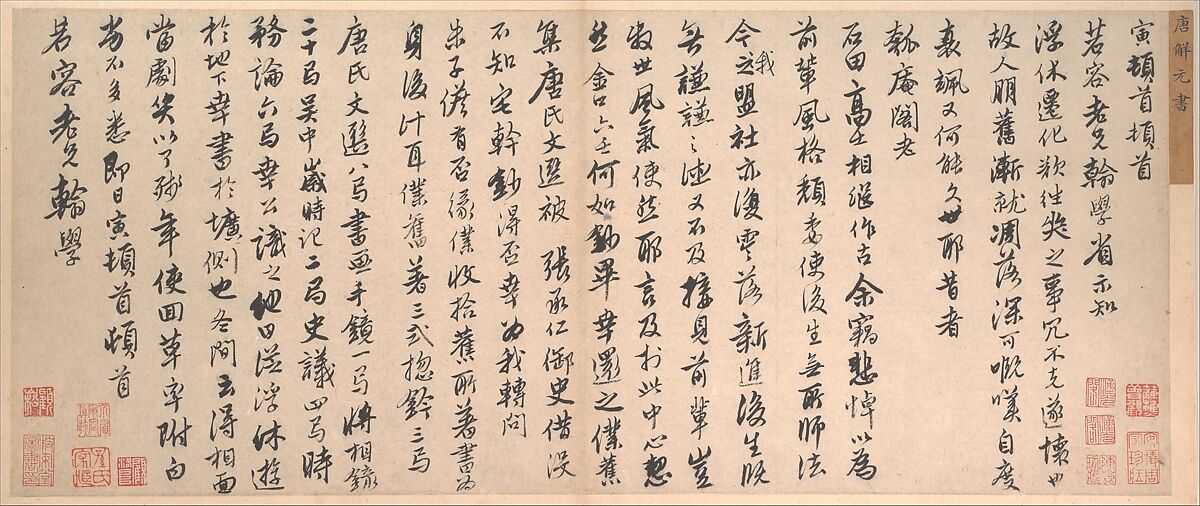 唐解元書
寅頓首頓首
若容老兄翰學省示知
浮休遷化欲往候之事冗不克遂壞也
故人朋舊漸就凋落深可嘅嘆自度
衰颯又何能久世耶昔者
瓠庵閣老
石田高士相繼作古余竊悲悼以為
前輩風格頹委使後生無所師法
今之我盟社亦復零落新進後生既
無謙謙之德又不及接見前輩豈
衰世風氣使然耶言及於此中心愁
然 金口六壬何如鈔畢幸還之僕舊
集唐氏文選被 張承仁御史借沒
不知宅幹鈔得否幸為我轉問
朱子儋有否緣僕收拾舊所著書為
身後計耳僕舊著三式總鈐三寫
唐氏文選八寫書畫手鏡一寫將相錄
二十寫吳中歲時記二寫史議四寫時
務論六寫幸公識之他日從浮休遊
於地下幸書於壙側也冬間云得相面
當劇笑以了殘年使回草率附白
劣不多悉 即日寅頓首頓首
若容老兄翰學